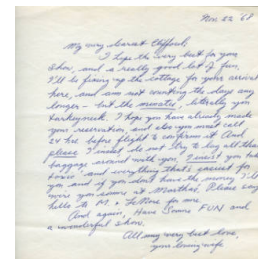 Nov. 22 '68
My very dearest Clifford;
I hope the very best for your
show, and a really good lot of fun,
I'll be fixing up the cottage for your arrival
here, and am not counting the days any
longer - but the minutes, literally you
turkeyneck. I hope you have already made
your reservation, and also you must call
24 hrs before flight & confirm it. And
please I insist do not try to lug all that
baggage around with you, I insist you take
taxis, and everything that's easiest for
you and if you don't have the money I'll
hello to M. + for me
And again, Have Some FUN and
a wonderful show.
All my very best love,
your loving wife